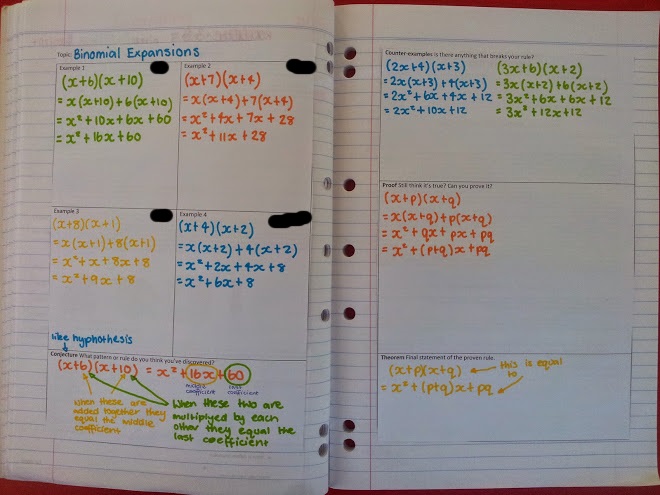 Topic: Binomial Expansions
Example 1
(x+6)(x+10)
= x(x+10)+6(x+10)
= x²+10x+6x+60
= x²+16x+60
Example 2
(x+7)(x+4)
= x(x+4)+7(x+4)
= x²+4x+7x+28
= x²+11x+28
Example 3
(x+8)(x+1)
= x(x+1)+8(x+1)
= x²+x+8x+8
= x²+9x+8
Example 4
(x+4)(x+2)
= x(x+2)+4(x+2)
= x²+2x+4x+8
= x²+6x+8
like hyphothesis
Conjecture What pattern or rule do you think you've discovered?
(x+6)(x+10) = x²+16x+60
middle coefficient
last coefficient
When these are
added together they
equal the middle
coefficient
When these two are
multiplyed by each
other they equal the
last coefficient
Counter-examples Is there anything that breaks your rule?
(2x+4)(x+3)
= 2x(x+3)+4(x+3)
= 2x²+6x+4x+12
= 2x²+10x+12
(3x+6)(x+2)
= 3x(x+2)+6(x+2)
= 3x²+6x+6x+12
= 3x²+12x+12
Proof Still think it's true? Can you prove it?
(x+p)(x+q)
= x(x+q)+p(x+q)
= x²+qx+px+pq
= x²+(p+q)x+pq
Theorem Final statement of the proven rule.
(x+p)(x+q)
this is equal
to
= x²+(p+q)x+pq